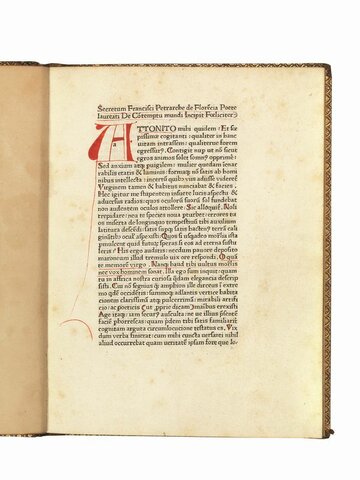 Secretum Francisci Petrarche de Florēcia Poete
laureati De Cōtemptu mundi Incipit Foeliciter
ATTONITO mihi quidem : Et sę
pissimæ cogitanti : qualiter in hanc
uitam intrassem : qualiterue forem
egressurꝰ : Contigit nup ut nō sicut
egros animos solet somnꝰ opprime
Sed anxium atq; puigilem : mulier
rabilis etatis & luminis : formaq; nō satis ab
nibus intellecta : incertū quibꝰ uiis adisse uideret
Virginem tamen & habitus nunciabat & facies .
Hec igitur me stupentem insuete lucis aspectu &
aduersus radios : quos oculorū suorū sol fundebat
non audentem oculos attollere . Sic alloquit̄ . Noli
trepidare : nea te species noua pturbet : errores tu
os miserata de longinquo tempestiuū tibi auxilium
latura descēdi : satis supq; satis hactenꝰ terrā cali
ginātibꝰ oculis aspexisti : Quos si usqueadeo mortalia ista
pmulcent quid futurū speras si eos ad eterna sustu
leris : His ergo auditis : necdum pauore deposito
maroneum illud tremulo uix ore respondi . O quā
te memorē uirgo . Nanq; haud tibi uultus mortalis
nec vox hominem sonat . Illa ego sum inquit : quam
tu in affrica nostra curiosa quadam elegancia descrip
sisti . Cui nō segniꝰ q̄ amphion ille dirceus : in extre
mo qdē occidētis : summoq; adlantis vertice habita
cionem clarissimā atq; pulcerrimā : mirabili artifi
cio ac poeticis
Age itaq; iam securꝰ ausculta : ne ue illiꝰ psentē
faciē phorrescas : quam pridem tibi satis familiaritē
cognitam arguta circumlocucione testatus es . Vix
dum verba finierat : cum mihi cuncta uersanti nihil
aliud occurrebat quam ueritatē ipsam fore que lo-